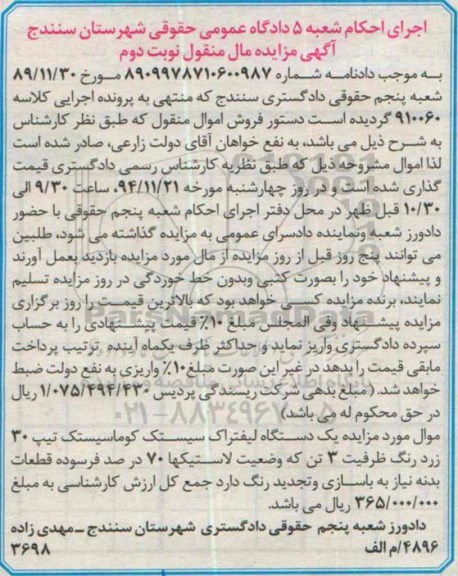 اجرای احکام شعبه ۵ دادگاه عمومی حقوقی شهرستان سنندج
آگهی مزایده مال منقول نوبت دوم
به موجب دادنامه شماره ۸۹۰۹۹۷۸۷۱۰۶۰۰۹۸۷ مورخ ۸۹/۱۱/۳۰
شعبه پنجم حقوقی دادگستری سنندج که منتهی به پرونده اجرایی کلاسه
۹۱۰۰۶۰ گردیده است دستور فروش اموال منقول که طبق نظر کارشناس
به شرح ذیل می باشد، به نفع خواهان آقای دولت زارعی، صادر شده است
لذا اموال مشروحه ذیل که طبق نظریه کارشناس رسمی دادگستری قیمت
گذاری شده است و در روز چهارشنبه مورخه ۹۴/۱۱/۲۱، ساعت ۹/۳۰ الی
۱۰/۳۰ قبل ظهر در محل دفتر اجرای احکام شعبه پنجم حقوقی با حضور
دادورز شعبه ونماینده دادسرای عمومی به مزایده گذاشته می شود، طلبین
می توانند پنج روز قبل از روز مزایده از مال مورد مزایده بازدید بعمل آورند
و پیشنهاد خود را بصورت کتبی وبدون خط خوردگی در روز مزایده تسلیم
نمایند، برنده مزایده کسی خواهد بود که بالاترین قیمت را روز برگزاری
مزایده پیشنهاد وفی المجلس مبلغ ۱۰٪ قیمت پیشنهادی را به حساب
سپرده دادگستری واریز نماید و حداکثر ظرف یکماه آینده ترتیب پرداخت
مابقی قیمت را بدهد در غیر این صورت مبلغ ۱۰٪ واریزی به نفع دولت ضبط
خواهد شد. (مبلغ بدهی شرکت ریسندگی پردیس ۱/۰۷۵/۴۹۴/۴۳۰ ریال
در حق محکوم له می باشد)
موال مورد مزایده یک دستگاه لیفتراک سیستک کوماسیستک تیپ ۳۰
زرد رنگ ظرفیت ۳ تن که وضعیت لاستیکها ۷۰ در صد فرسوده قطعات
بدنه نیاز به باسازی وتجدید رنگ دارد جمع کل ارزش کارشناسی به مبلغ
۳۶۵/۰۰۰/۰۰۰ ریال می باشد.
دادورز شعبه پنجم حقوقی دادگستری شهرستان سنندج ـ مهدی زاده
۴۸۹۶/م الف ۳۶۹۸
ParsNamadData
۰۲۱-۸۸۳۴۹۶۷۰-۵